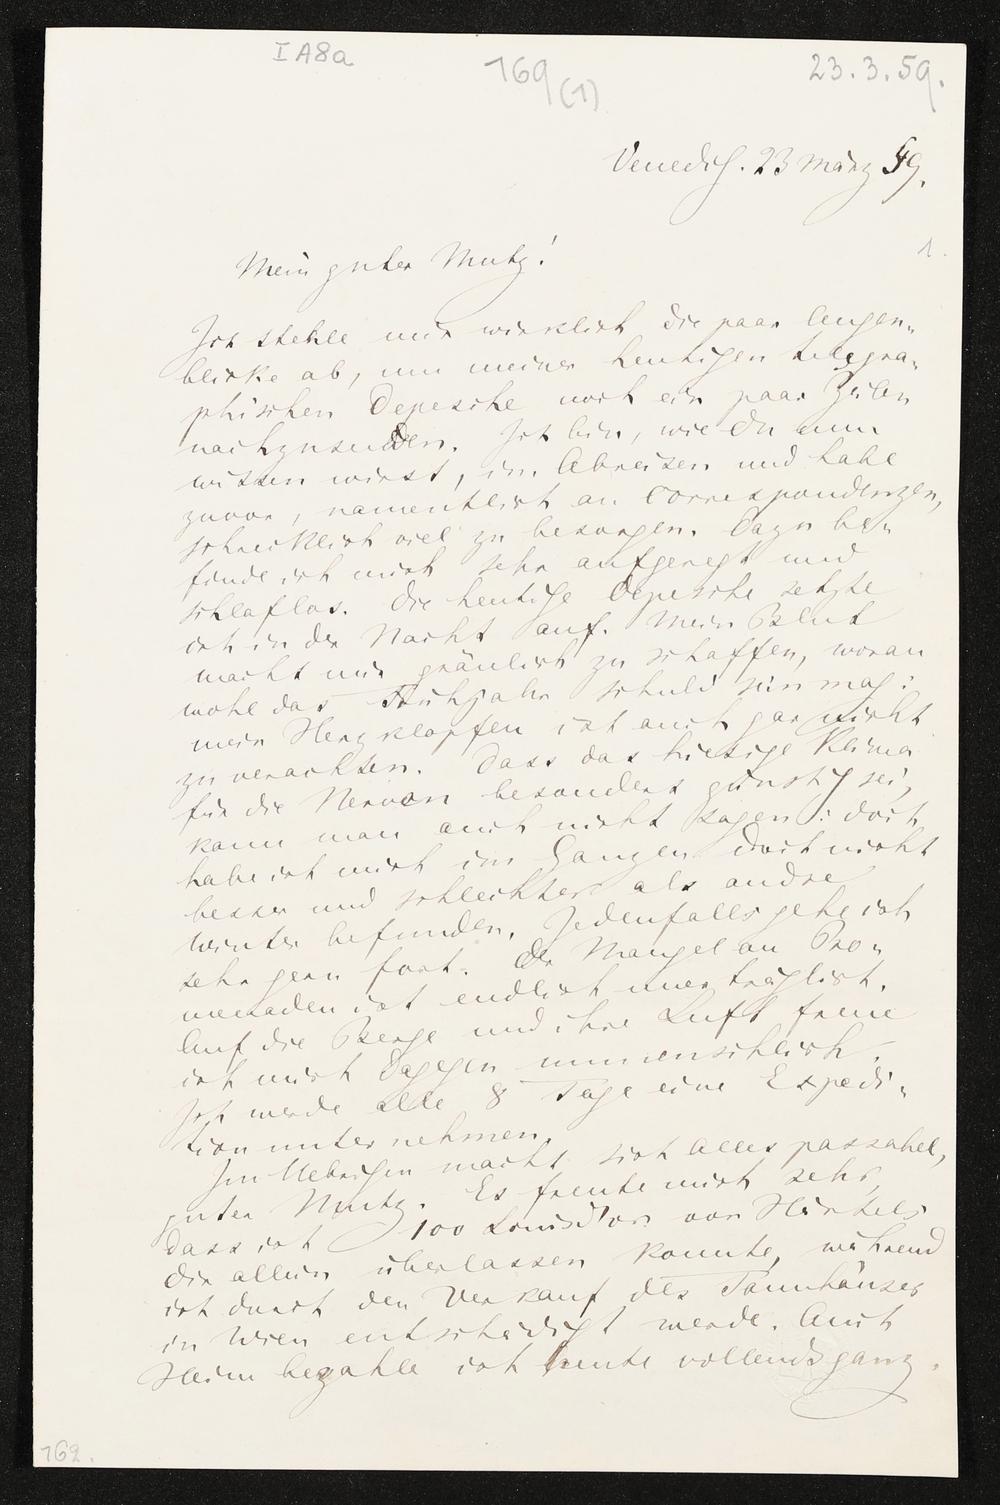 I A8a
169 (1)
23.3.59.
Venedig. 23 März 59.
1.
Mein guter Mutz!
Ich stehle mir wirklich die paar Augen-
blicke ab, um meiner heutigen telegra-
phischen Depesche noch ein paar Zeilen
nachzusenden. Ich bin, wie Du nun
wissen wirst, im Abreisen und habe
zuvor, namentlich an Correspondenzen,
schrecklich viel zu besorgen. Dazu be-
finde ich mich sehr aufgeregt und
schlaflos. Die heutige Depesche setzte
ich in der Nacht auf. Mein Blut
macht mir gräulich zu schaffen, woran
wohl das Frühjahr schuld sein mag:
mein Herzklopfen ist auch gar nicht
zu verachten. Dass das hiesige Klima
für die Nerven besonders günstig sei,
kann man auch nicht sagen: doch
habe ich mich im Ganzen doch nicht
besser und schlechter als andre
Winter befunden. Jedenfalls gehe ich
sehr gern fort. Der Mangel an Pro-
menaden ist endlich unerträglich.
Auf die Berge und ihre Luft freue
ich mich dagegen unmenschlich.
Ich werde alle 8 Tage eine Expedi-
tion unternehmen.
Im Uebrigen macht sich Alles passabel,
guter Mutz. Es freute mich sehr,
dass ich 100 Louisd'or von Härtels
dir allein überlassen konnte, während
ich durch den Verkauf des Tannhäuser
in Wien entschädigt werde. Auch
Heim bezahle ich heute vollends ganz.
169.